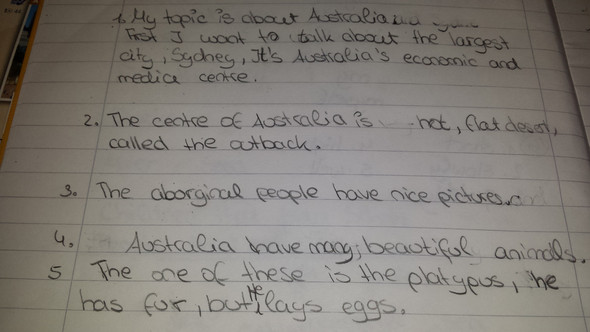 1. My topic is about Australia
First I want to talk about the largest
city, Sydney, It's Australia's economic and
media centre.
2. The centre of Australia is hot, flat desert,
called the outback.
3. The aborginal people have nice pictures.
4. Australia have many beautiful animals.
5 The one of these is the platypus, he
has fur, but he lays eggs.